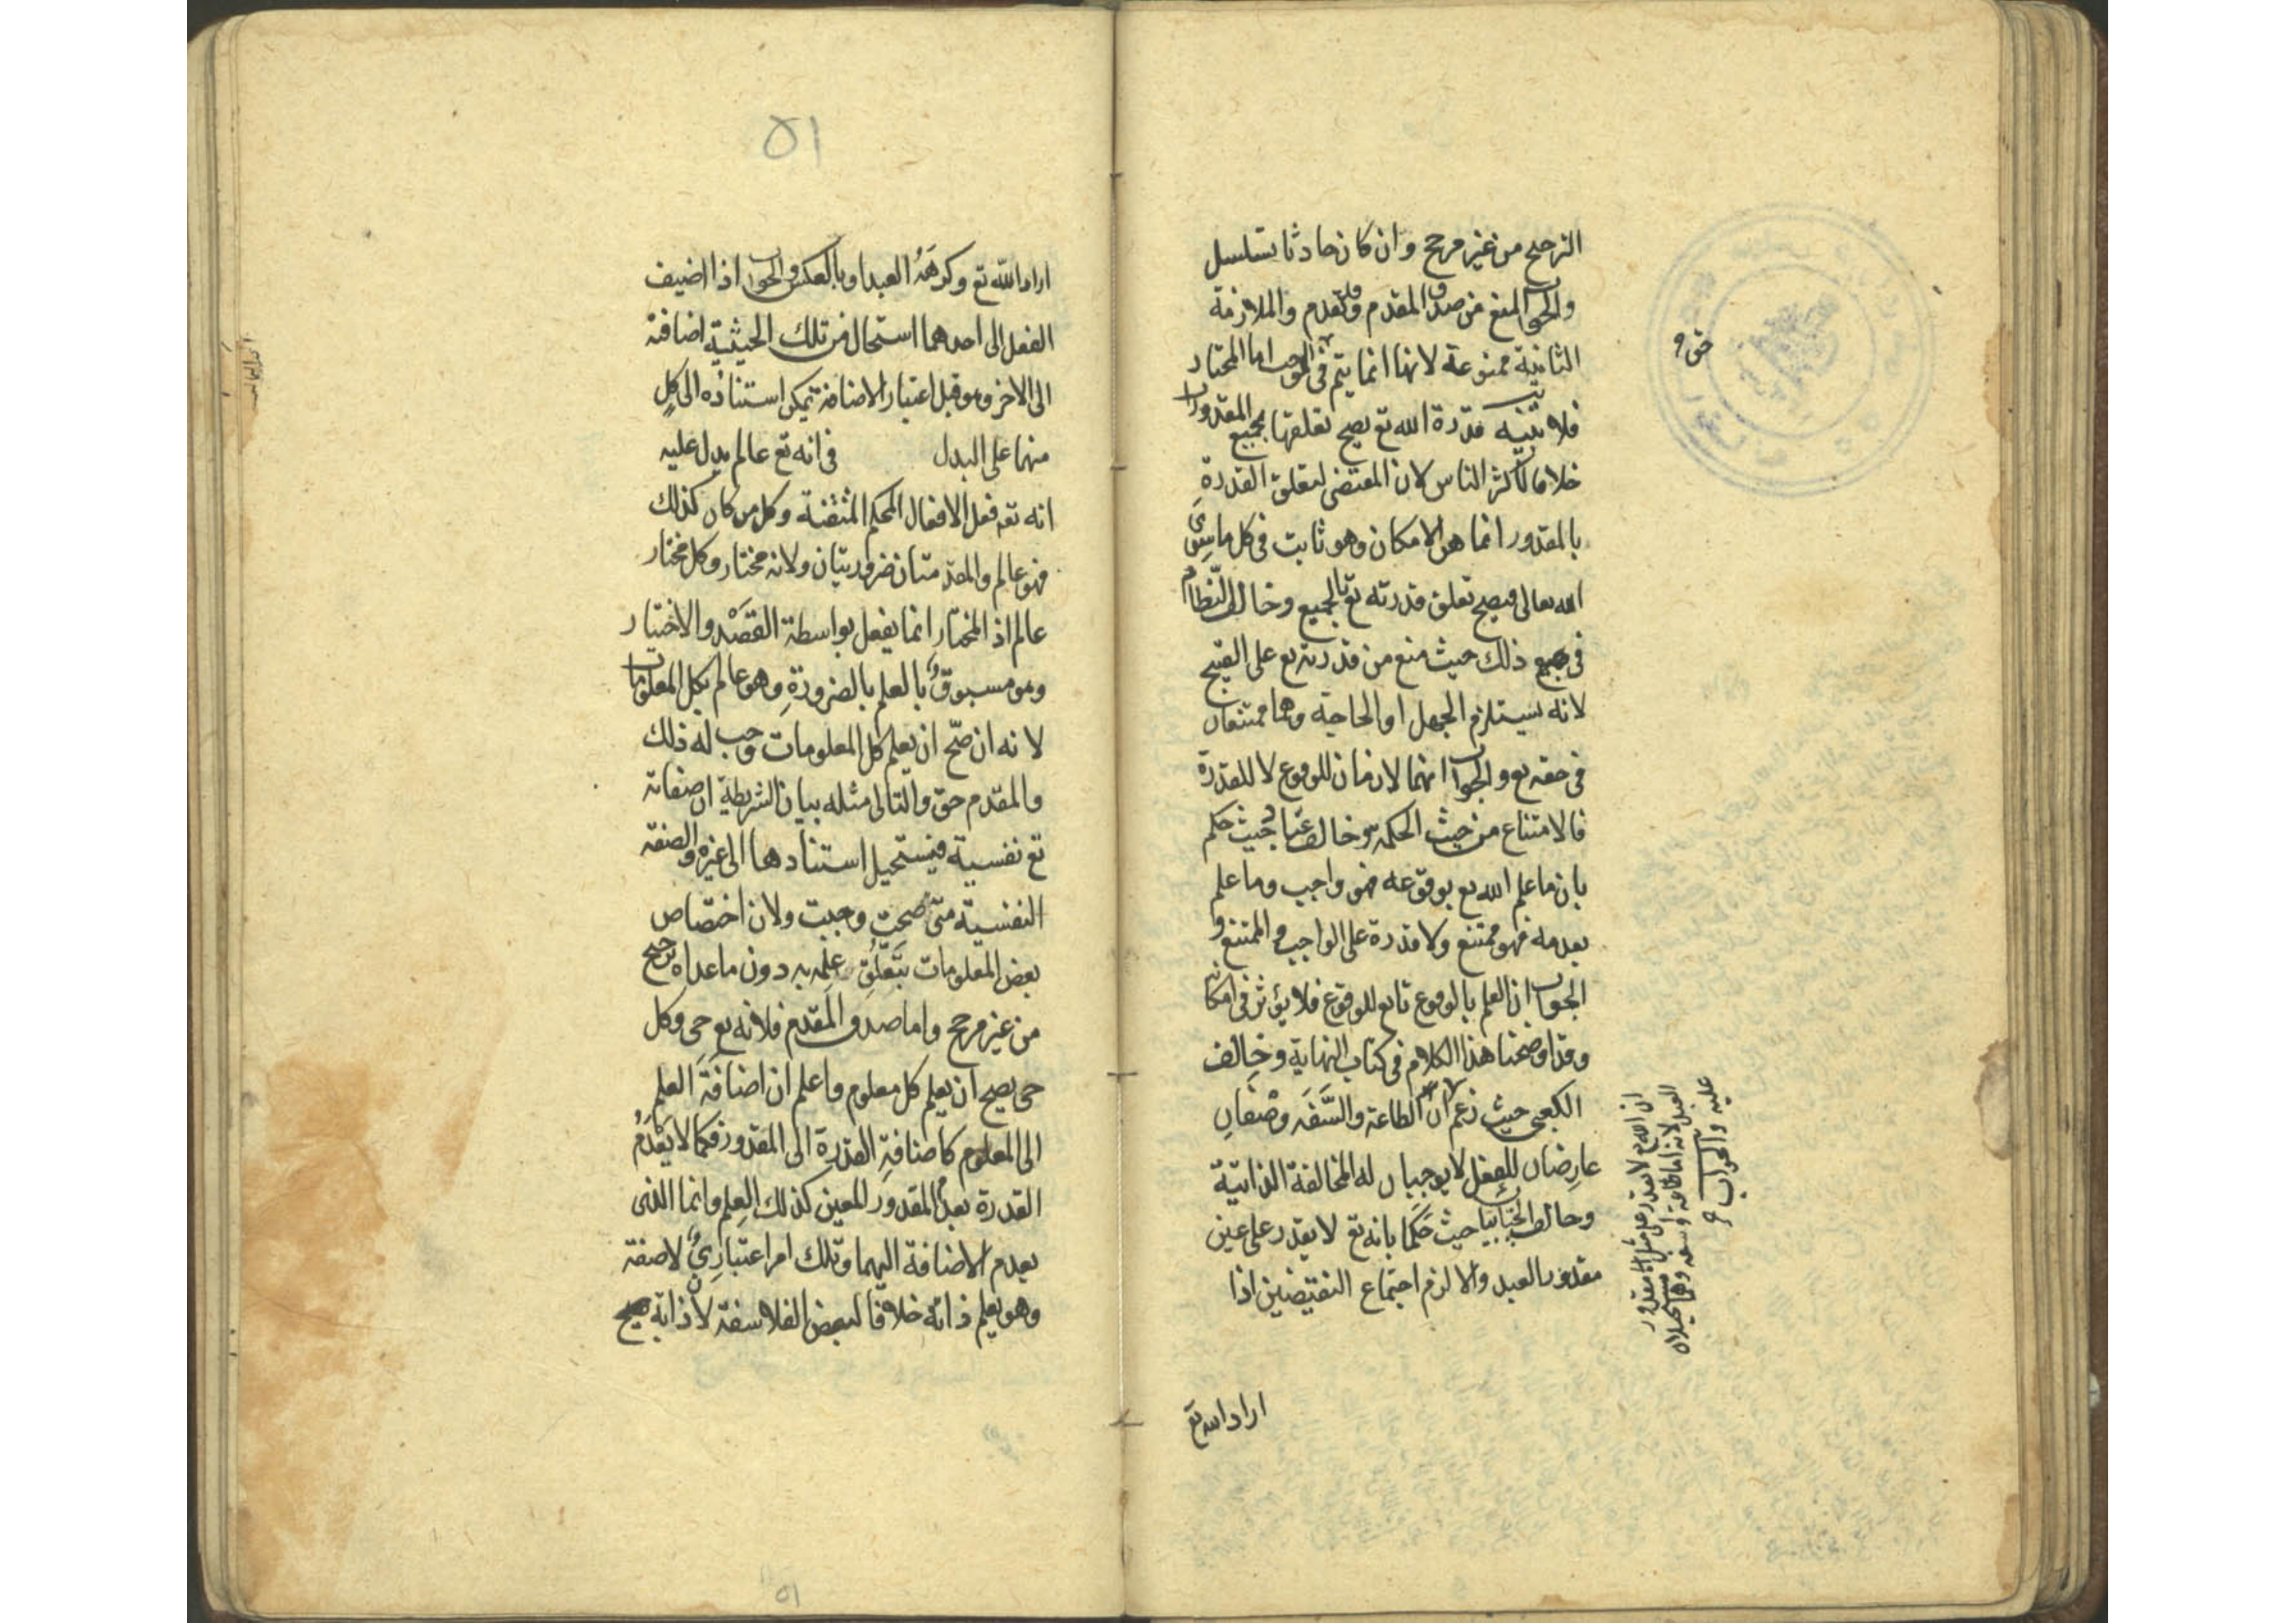 الترجيح من غير مرجح وان كان حادثا تسلسل
والجواب المنع من صدق المقدم وقد تقدم والملازمة
الثانية ممنوعة لانها انما يتم في الموجب اما المختار
فلا تنبيه قدرة الله تع يصح تعلقها بجميع المقدورات
خلافا لاكثر الناس لان المقتضى لتعلق القدرة
بالمقدور انما هو الامكان وهو ثابت في كل ما سوى
الله تعالى فيصح تعلق قدرته تع بالجميع وخالف النظام
في جميع ذلك حيث منع من قدرته تع على القبيح
لانه يستلزم الجهل او الحاجة وهما ممتنعان
في حقه تع والجواب انهما لازمان للوقوع لا للقدرة
فالامتناع من حيث الحكمة وخالف عباد حيث حكم
بان ما علم الله تع بوقوعه فهو واجب وما علم
بعدمه فهو ممتنع ولا قدرة على الواجب والممتنع و
الجواب ان العلم بالوقوع تابع للوقوع فلا يؤثر في امكانه
وقد اوضحنا هذا الكلام في كتاب النهاية وخالف
الكعبي حيث زعم ان الطاعة والسَّفَه وصْفَانِ
عارِضان للفعل لا يوجبان له المخالفة الذاتية
وخالف الجبائيان حيث حَكَما بانه تع لا يقدر على عين
مقدور العبد والا لزم اجتماع النقيضين اذا
ان الله تع لا يقدر على مثل مقدور
العبد لانه اما طاعة او سفه وهما مستحيلان
عليه والجواب
اراد الله تع
٥١
اراد الله تع وكرهَهُ العبد او بالعكس والجواب اذا اضيف
الفعل الى احدهما استحال من تلك الحيثية اضافته
الى الاخر وهو قبل اعتبار الاضافة يمكن استنادُه الى كلٍ
منهما على البدل في انه تع عالم يدل عليه
انه تع فعل الافعال المحكم المتقنة وكل من كان كذلك
فهو عالم والمقدمتان ضروريتان ولانه مختار وكل مختار
عالم اذ المختار انما يفعل بواسطة القَصْد والاختيار
وهو مسبوقٌ بالعلم بالضرورةِ وهو عالم بكل المعلومات
لانه ان صَحّ ان يعلم كل المعلومات وجب له ذلك
والمقدم حق والتالى مثله بيان الشرطية ان صفاته
تع نفسية فيستحيل استنادها الى غيره والصفة
النفسية متى صحت وجبت ولان اختصاص
بعض المعلومات بتَعلُّقِ علمه به دون ما عداه ترجيح
من غير مرجح واما صدق المقدم فلانه تع حى وكل
حى يصح ان يعلم كل معلوم واعلم ان اضافَةَ العلم
الى المعلوم كاضافةِ القدرة الى المقدور فكما لا يعْدَمُ
القدرة بعدم المقدور المعين كذلك العِلم وانما الذى
يعدم الاضافة اليهما وتلك امر اعتبارىٌّ لا صفة
وهو يعلم ذاته خلافا لبعض الفلاسفة لان ذاته يصح
٥١